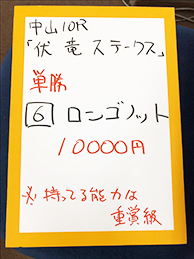 中山10R
「伏竜ステークス」
単勝
6 ロンゴノット
10000円
※持ってる能力は
重賞級